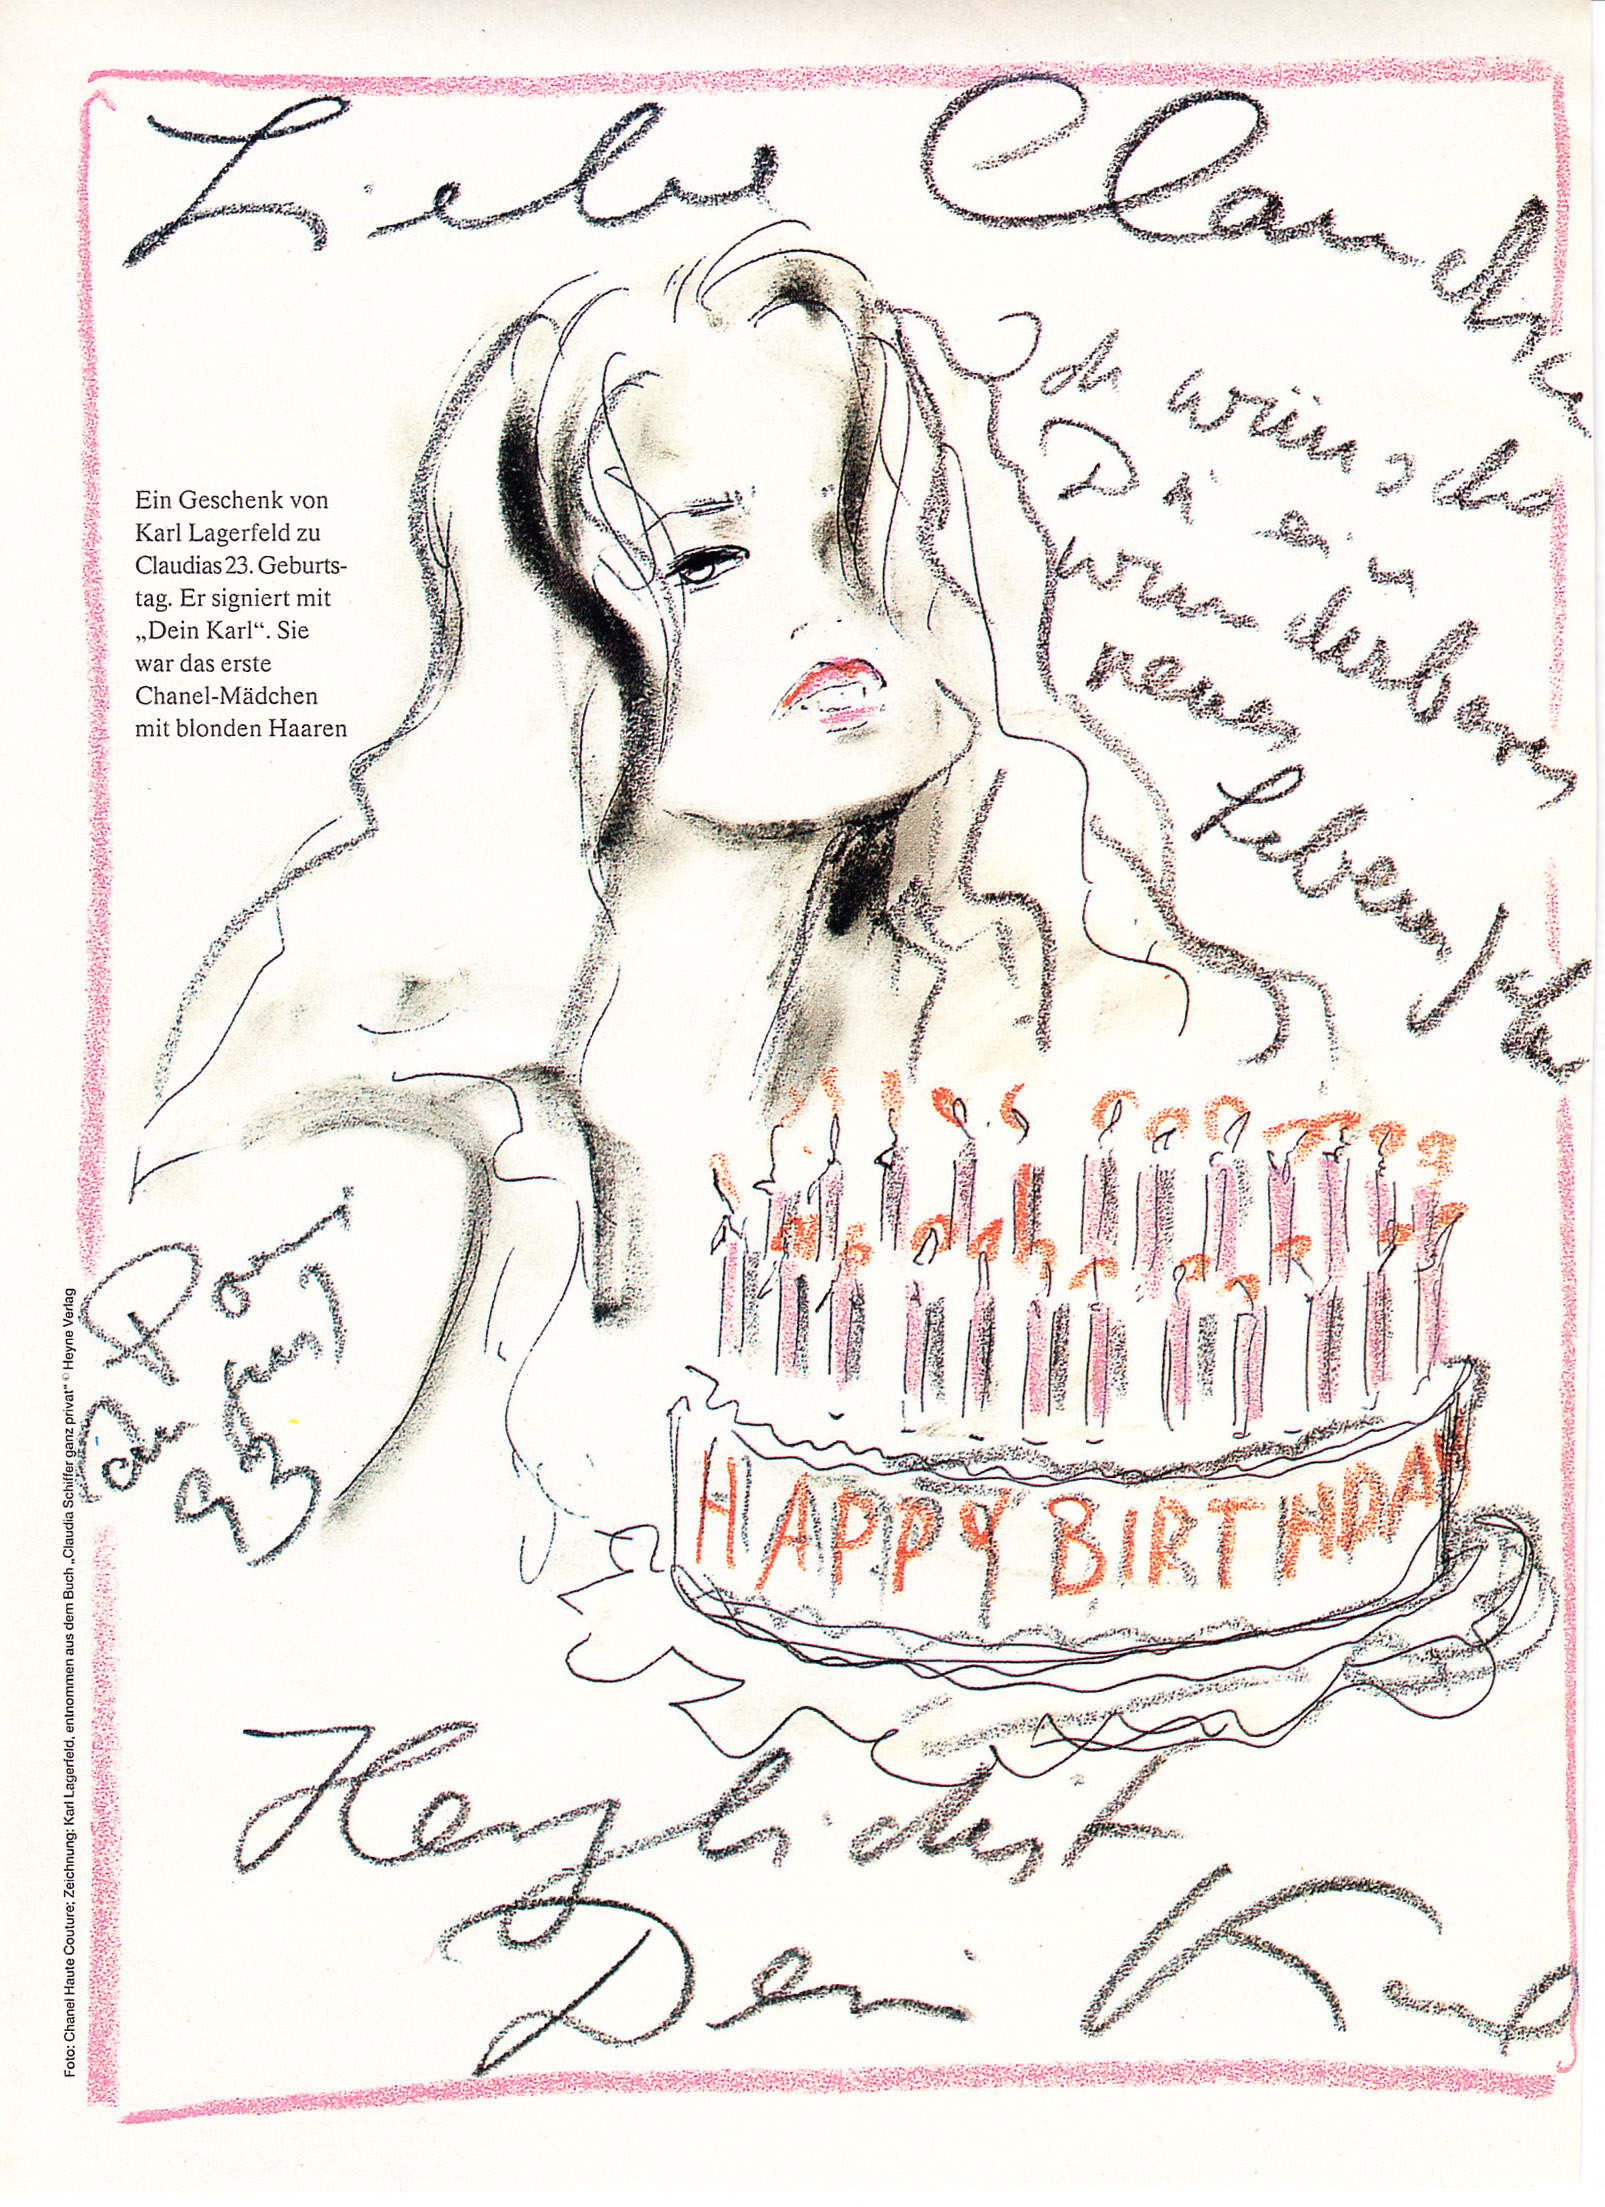 Liebe Claudia
Ich wünsche
Dir ein
wunderbares
neues
Lebensjahr
Ein Geschenk von
Karl Lagerfeld zu
Claudias 23. Geburts-
tag. Er signiert mit
„Dein Karl“. Sie
war das erste
Chanel-Mädchen
mit blonden Haaren
Paris
den
August
93
HAPPY BIRTHDAY
Herzlichst
Dein Karl
Foto: Chanel Haute Couture; Zeichnung: Karl Lagerfeld, entnommen aus dem Buch „Claudia Schiffer ganz privat“ © Heyne Verlag